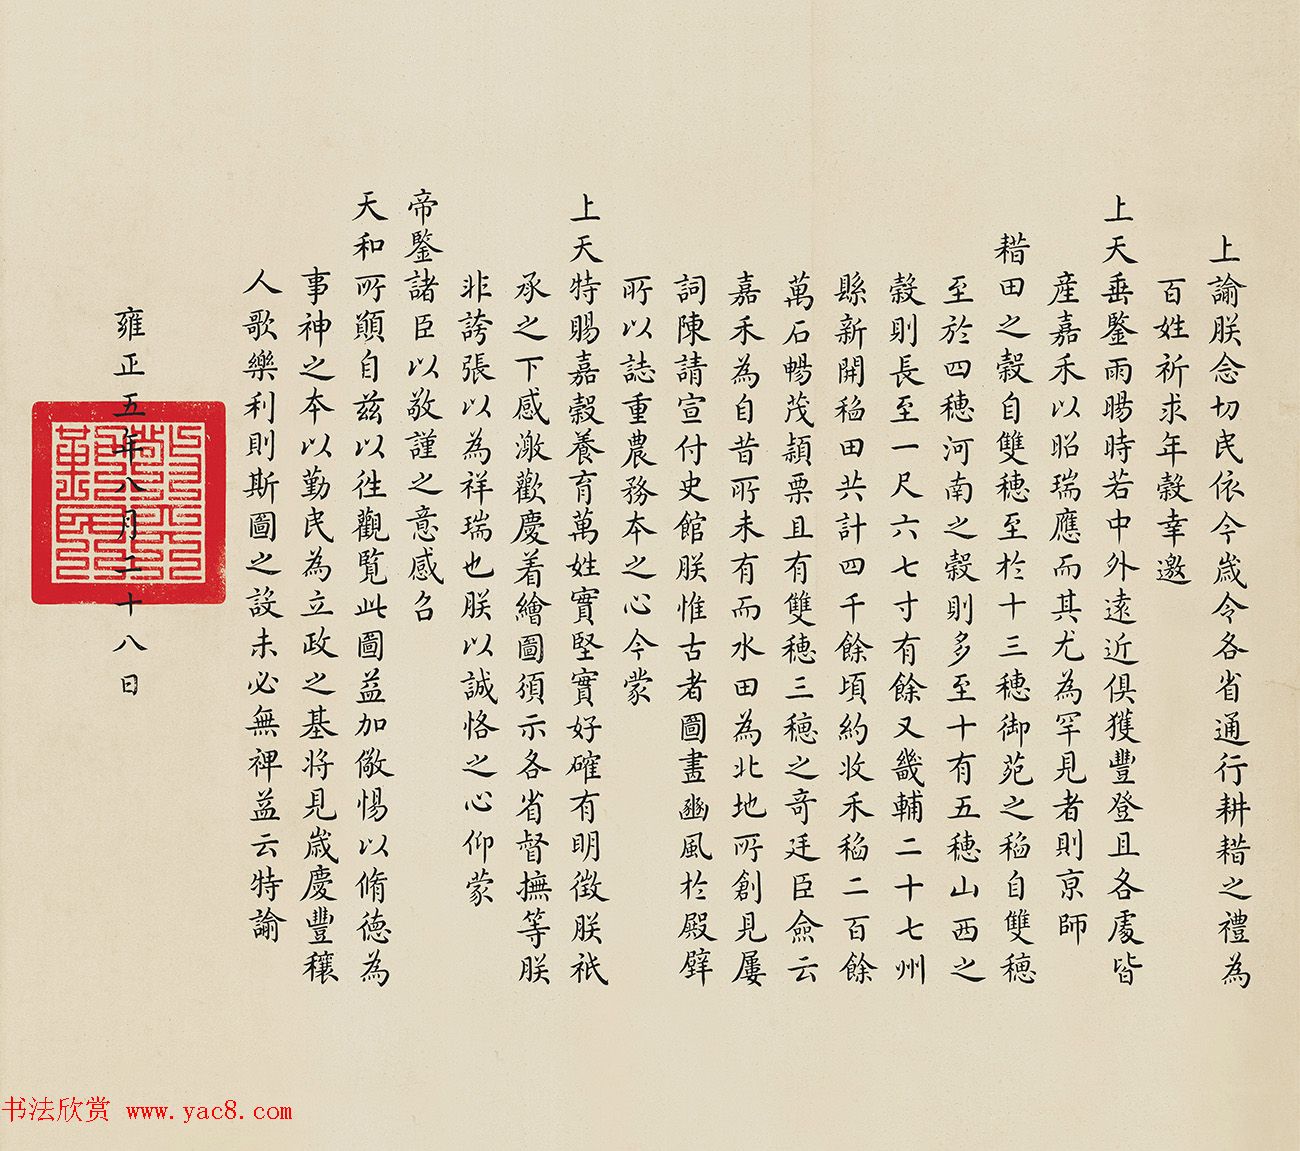 上諭朕念切民依今歲令各省通行耕耤之禮為
百姓祈求年穀幸邀
上天垂鑒雨暘時若中外遠近俱獲豐登且各處皆
產嘉禾以昭瑞應而其尤為罕見者則京師
耤田之穀自雙穗至於十三穗御苑之稻自雙穗
至於四穗河南之穀則多至十有五穗山西之
穀則長至一尺六七寸有餘又畿輔二十七州
縣新開稻田共計四千餘頃約收禾稻二百餘
萬石暢茂穎栗且有雙穗三穗之奇廷臣僉云
嘉禾為自昔所未有而水田為北地所創見屢
詞陳請宣付史館朕惟古者圖畫豳風於殿壁
所以誌重農務本之心今蒙
上天特賜嘉穀養育萬姓實堅實好確有明徵朕祇
承之下感激歡慶着繪圖頒示各省督撫等朕
非誇張以為祥瑞也朕以誠恪之心仰蒙
帝鑒諸臣以敬謹之意感召
天和所願自茲以往觀覽此圖益加儆惕以脩德為
事神之本以勤民為立政之基將見歲慶豐穰
人歌樂利則斯圖之設未必無裨益云特諭
雍正五年八月二十八日
书法欣赏 www.yac8.com